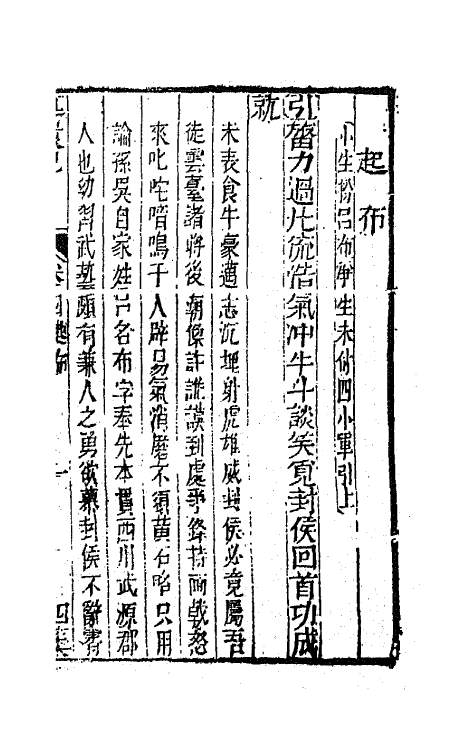 起布
小生扮呂布淨生末付四小軍引上
引膂力過凡流浩氣冲牛斗談笑覓封侯回首功成
就
未表食牛豪邁志沉埋射虎雄威封侯必竟屬吾
徒雲臺諸將後 朝傑許 到處爭鋒持画戟怒
來叱咤喑鳴千人辟易氣消磨不須黄石略只用
論孫吳自家姓呂名布字奉先本貫西川武源郡
人也幼習武藝頗有兼人之勇欲慕封侯不辭
卷四起布
四集